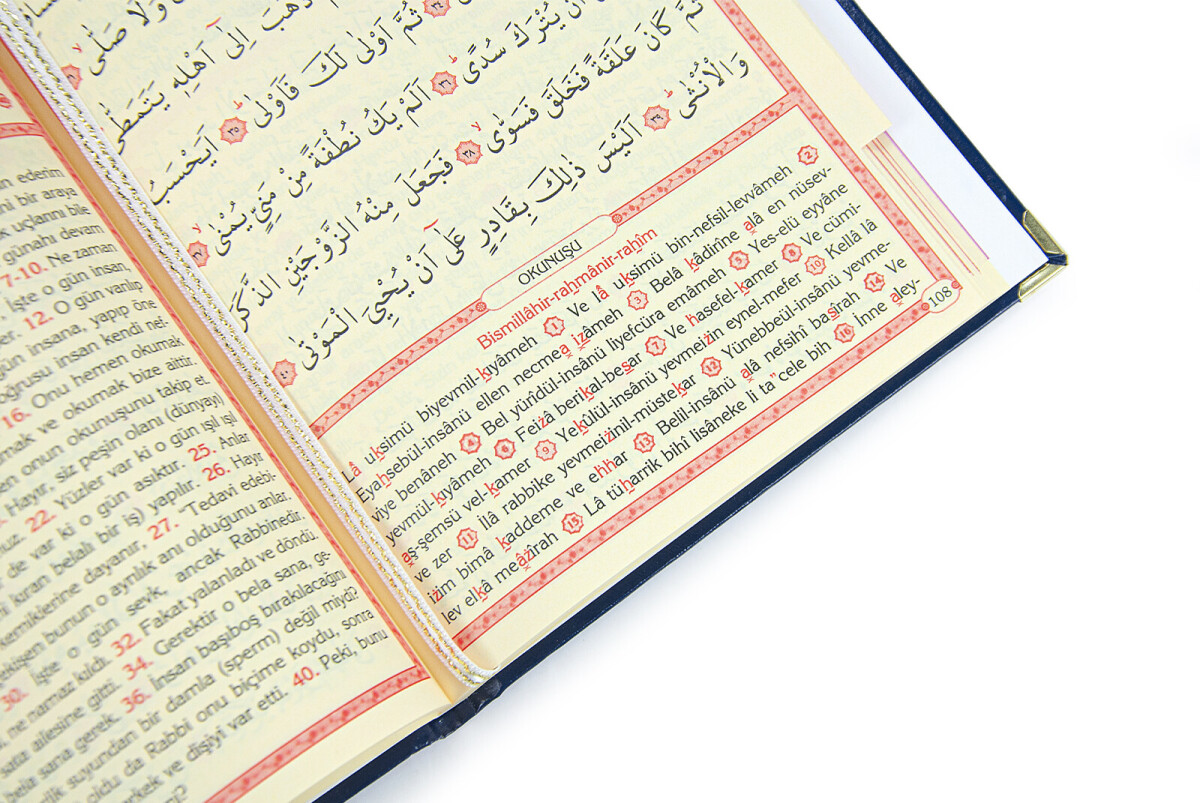 وَلَا صَلّٰى ﴿٣١﴾
ذَهَبَ اِلٰٓى اَهْلِه۪ يَتَمَطّٰى
ثُمَّ اَوْلٰى لَكَ فَاَوْلٰى ﴿٣٥﴾ اَيَحْسَبُ
اَنْ يُتْرَكَ سُدًى ﴿٣٦﴾ اَلَمْ يَكُ نُطْفَةً مِنْ مَنِيٍّ يُمْنٰى ﴿٣٧﴾
ثُمَّ كَانَ عَلَقَةً فَخَلَقَ فَسَوّٰى ﴿٣٨﴾ فَجَعَلَ مِنْهُ الزَّوْجَيْنِ الذَّكَرَ
وَالْاُنْثٰى ﴿٣٩﴾ اَلَيْسَ ذٰلِكَ بِقَادِرٍ عَلٰٓى اَنْ يُحْيِيَ الْمَوْتٰى ﴿٤٠﴾
OKUNUŞU
Bismillâhir-rahmânir-rahîm
Lâ uksimü biyevmil-kıyâmeh 1 Ve lâ uksimü bin-nefsil-levvâmeh 2
Eyahsebül-insânü ellen necmea ızâmeh 3 Belâ kâdirîne alâ en nüsev-
viye benâneh 4 Bel yürîdül-insânü liyefcüra emâmeh 5 Yes-elü eyyâne
yevmül-kıyâmeh 6 Feizâ berikal-besar 7 Ve hasefel-kamer 8 Ve cümi-
aş-şemsü vel-kamer 9 Yekûlül-insânü yevmeizin eynel-mefer 10 Kellâ lâ
ve zer 11 İlâ rabbike yevmeizinil-müstekar 12 Yünebbeül-insânü yevme-
izim bimâ kaddeme ve ehhar 13 Belil-insânü alâ nefsihî basîrah 14 Ve
lev elkâ meâzîrah 15 Lâ tüharrik bihî lisâneke li ta"cele bih 16 İnne aley-
108
ederim
bir araya
uçlarını bile
günahı devam
7-10. Ne zaman
İşte o gün insan,
12. O gün varılıp
gün insana, yapıp öne
oğrusu insan kendi nef-
16. Onu hemen okumak
mak ve okumak bize aittir.
en onun okunuşunu takip et.
Hayır, siz peşin olanı (dünyayı)
22. Yüzler var ki o gün ışıl ışıl
de var ki o gün asıktır. 25. Anlar
ni kıran belalı bir iş) yapılır. 26. Hayır
kemiklerine dayanır, 27. "Tedavi edebi-
ekişen bunun o ayrılık anı olduğunu anlar.
30. İşte o gün sevk, ancak Rabbinedir.
ne namaz kıldı. 32. Fakat yalanladı ve döndü.
sata ailesine gitti. 34. Gerektir o bela sana, ge-
bela sana gerek. 36. İnsan başıboş bırakılacağını
suyundan bir damla (sperm) değil miydi?
oldu da Rabbi onu biçime koydu, sonra
erkek ve dişiyi var etti. 40. Peki, bunu